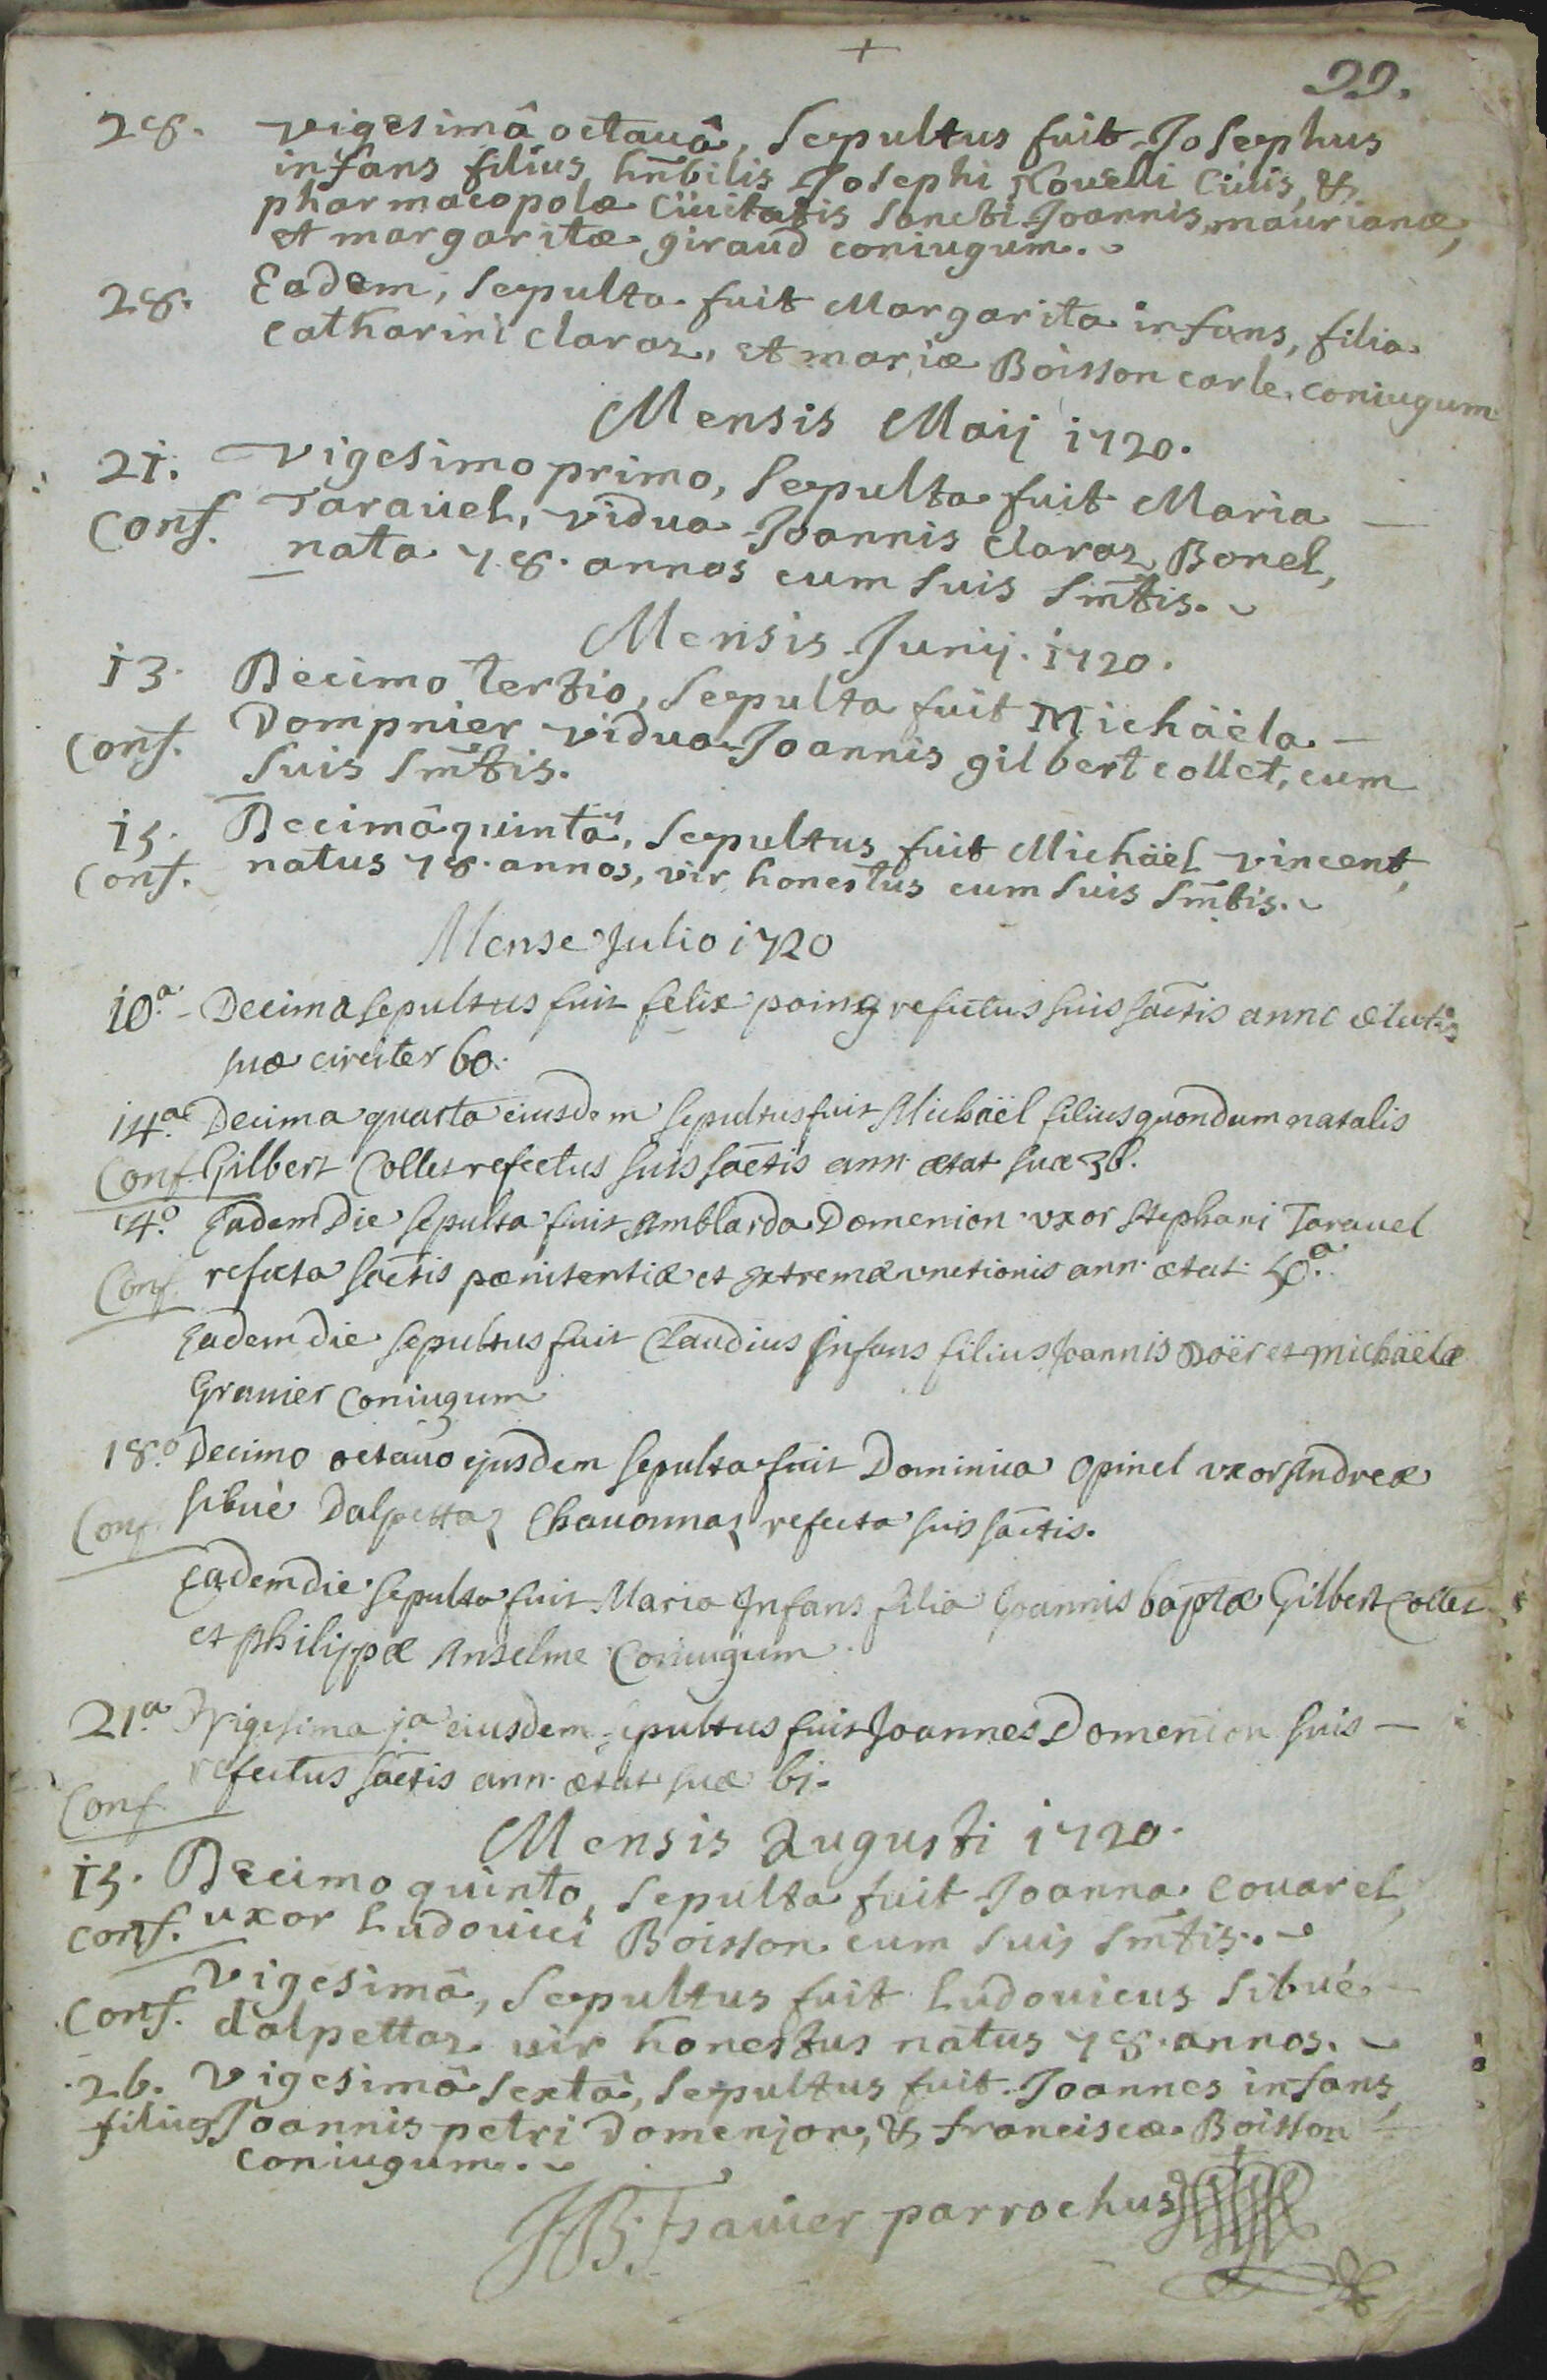 +
99.
28. vigesimâ octauâ, sepultus fuit Josephus
infans filius hn̄bilis Josephi Nouelli ciuis, &
pharmacopolæ ciuitatis sancti Joannis maurianæ,
et margaritæ giraud coniugum.
28. Eadem, sepulta fuit Margarita infans, filia
catharini claraz, et mariæ Boisson carle coniugum
Mensis Maij 1720.
21. Vigesimo primo, sepulta fuit Maria
Conf. Tarauel, vidua Joannis claraz Bonel,
nata 78. annos cum suis sm̄tis.
Mensis Junij. 1720.
13. Decimo tertio, sepulta fuit Michäela
Conf. Dompnier vidua Joannis gilbert collet, cum
suis sm̄tis.
15. Decimâ quintâ, sepultus fuit Michäel vincent,
Conf. natus 78. annos, vir honestus cum suis sm̄tis.
Mense Julio 1720
10.a Decima sepultus fuit felix poing refectus suis sāctis anno ætatis
suæ circiter 60.
14.a Decima quarta eiusdem sepultus fuit Michäel filius quondam natalis
Conf. Gilbert Collet refectus suis sāctis ann. ætat suæ 36.
14.o Eadem Die sepulta fuit Amblarda Domenion vxor stephani Tarauel
Conf. refecta sāctis pænitentiæ et extremæ vnctionis ann. ætat. 50.a
Eadem die sepultus fuit Claudius Infans filius Joannis Doër et michäelæ
Grauier coniugum
18.o Decimo octauo ejusdem sepulta fuit Dominica opinel vxor Andreæ
Conf. sibuè Dalpettaz Chauonnaz refecta suis sāctis.
Eadem die sepulta fuit Maria Infans filia Joannis baptæ Gilbert Collet
et philippæ Anselme Coniugum.
21.a Vigesima j.a eiusdem sepultus fuit Joannes Domenion suis
Conf. refectus sāctis ann. ætat suæ 61.
Mensis Augusti 1720.
15. Decimo quinto, sepulta fuit Joanna couarel,
conf. uxor Ludouici Boisson cum suis sm̄tis.
Vigesimâ, sepultus fuit Ludouicus sibué
Conf. dalpettaz vir honestus natus 78. annos.
26. Vigesimâ sextâ, sepultus fuit Joannes infans
filius Joannis petri Domenjon, & franciscæ Boisson
coniugum.
JB. Frauier parrochus